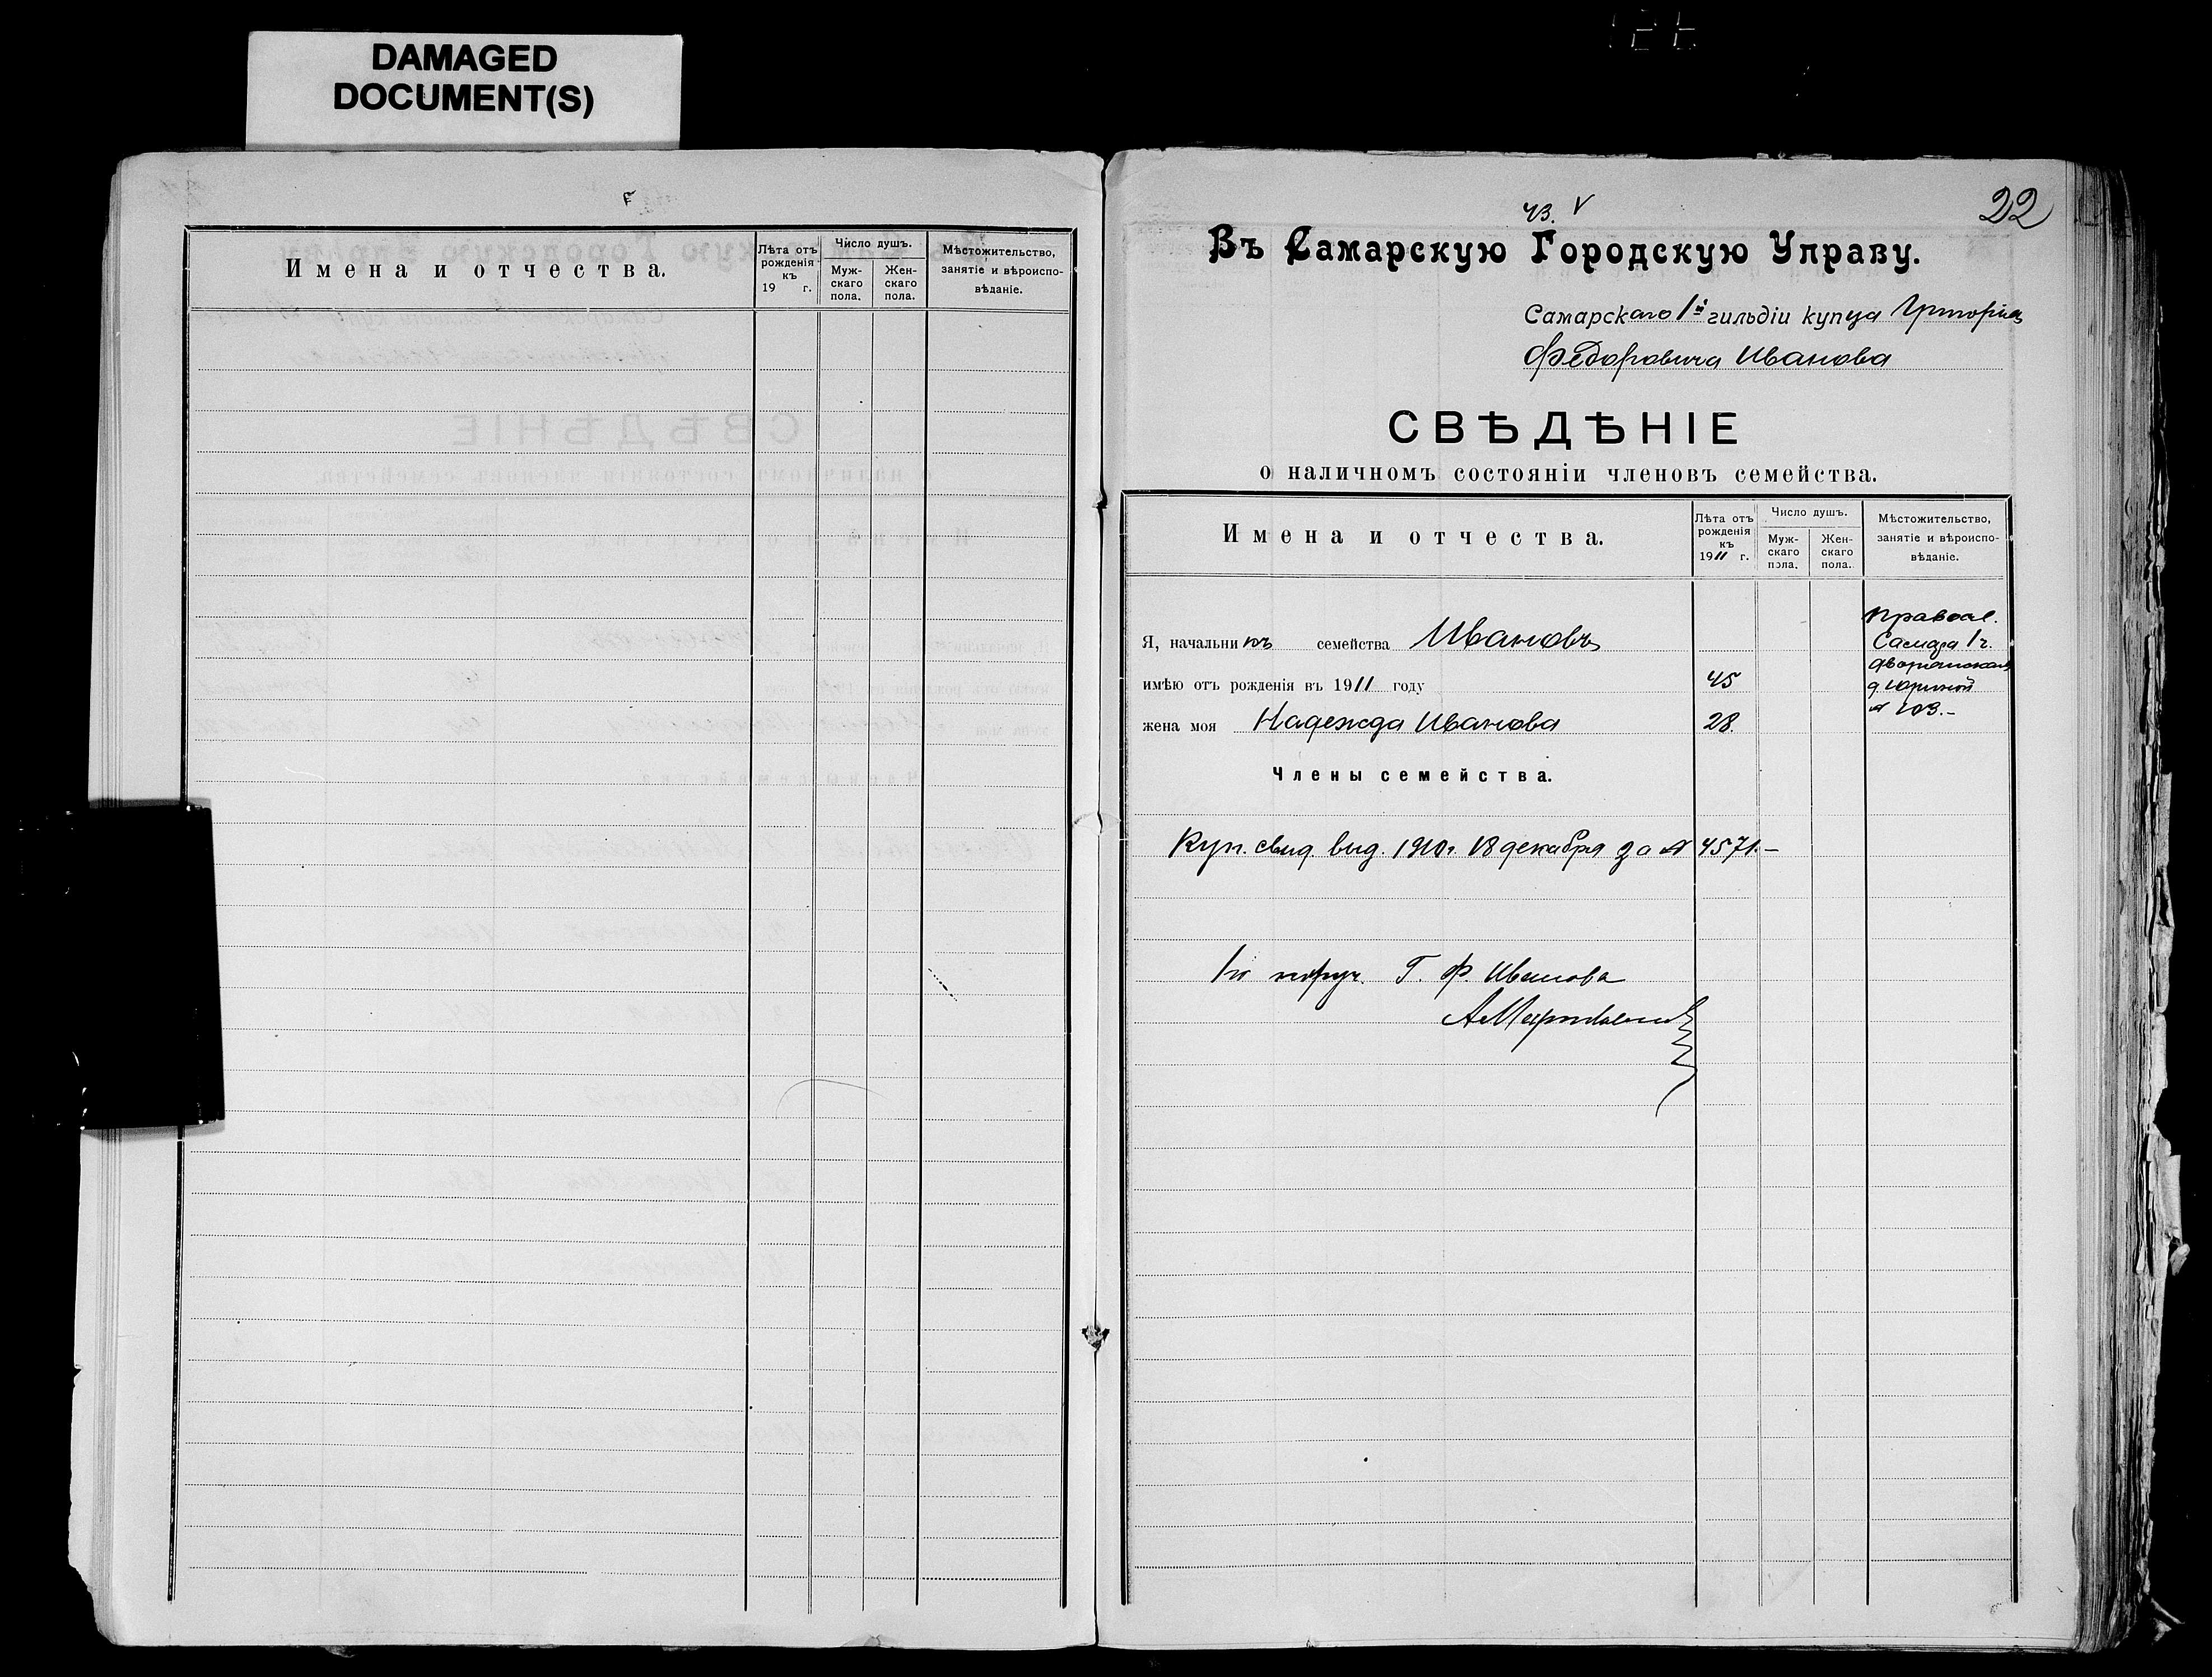 DAMAGED
DOCUMENT(S)
Имена и отчества.
Лѣта отъ рожденія къ 19 г.
Число душъ.
Муж-скаго пола.
Жен-скаго пола.
Мѣстожительство, занятіе и вѣроиспо-вѣданіе.
43. V
22
Въ Самарскую Городскую Управу.
Самарскаго 1й гильдіи купца Григорія
Федоровича Иванова
СВѢДѢНІЕ
о наличномъ состояніи членовъ семейства.
Имена и отчества.
Лѣта отъ рожденія къ 1911 г.
Число душъ.
Муж-скаго пола.
Жен-скаго пола.
Мѣстожительство, занятіе и вѣроиспо-вѣданіе.
Правосл.
Я, начальникъ семейства Ивановъ
Самара 1 ч.
Дворянская
имѣю отъ рожденія въ 1911 году 45
д.
жена моя Надежда Иванова 28.
№ 103.–
Члены семейства.
Куп. свид. выд. 1910 г. 18 декабря за № 4571.–
По поруч. Г. Ф. Иванова